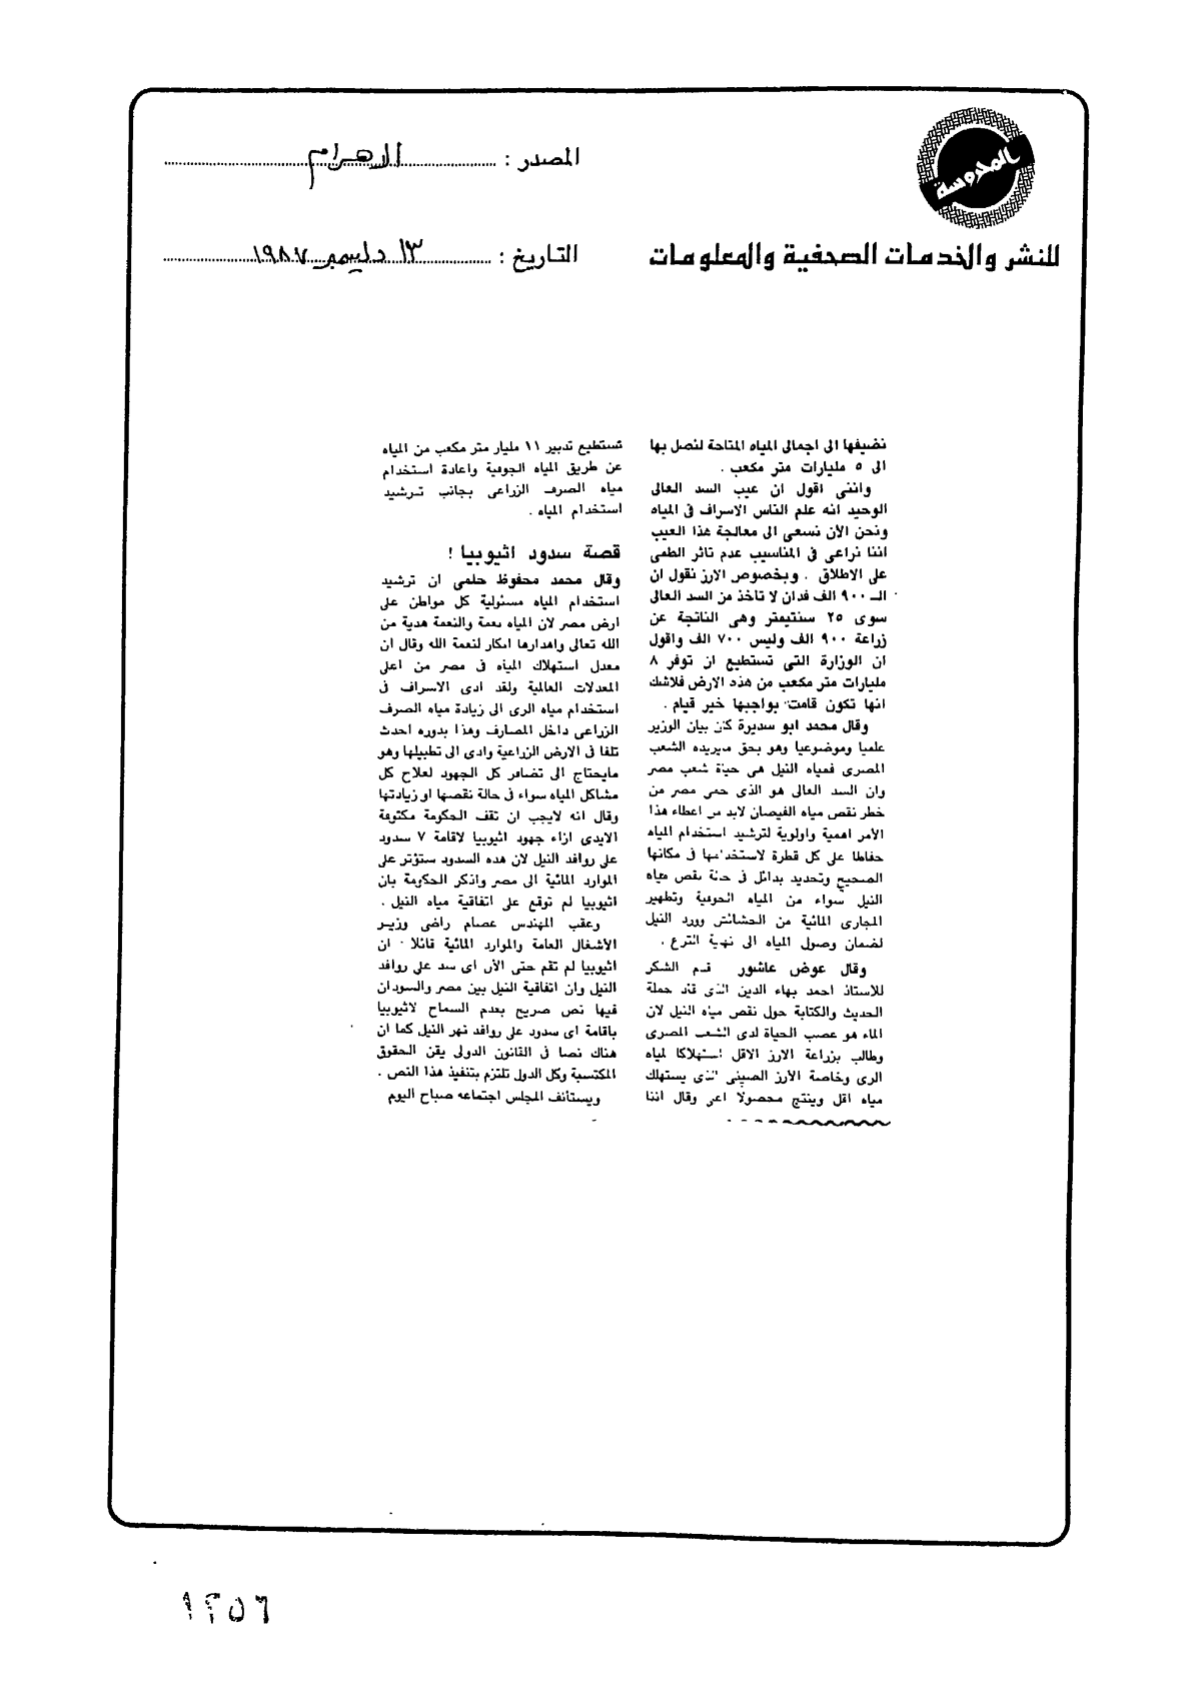 المحروسة
للنشر والخدمات الصحفية والمعلومات
المصدر : الاهرام
التاريخ : ١٣ ديسمبر ١٩٨٧
نضيفها الى اجمالى المياه المتاحة لنصل بها
الى ٥ مليارات متر مكعب .
واننى اقول ان عيب السد العالى
الوحيد انه علم الناس الاسراف فى المياه
ونحن الآن نسعى الى معالجة هذا العيب
اننا نراعى فى المناسيب عدم تاثر الطمى
على الاطلاق . وبخصوص الارز نقول ان
الـ ٩٠٠ الف فدان لا تاخذ من السد العالى
سوى ٢٥ سنتيمتر وهى الناتجة عن
زراعة ٩٠٠ الف وليس ٧٠٠ الف واقول
ان الوزارة التى تستطيع ان توفر ٨
مليارات متر مكعب من هذه الارض فلاشك
انها تكون قامت بواجبها خير قيام .
وقال محمد ابو سديرة كان بيان الوزير
علميا وموضوعيا وهو بحق مايريده الشعب
المصرى فمياه النيل هى حياة شعب مصر
وان السد العالى هو الذى حمى مصر من
خطر نقص مياه الفيضان لابد من اعطاء هذا
الأمر اهمية واولوية لترشيد استخدام المياه
حفاظا على كل قطرة لاستخدامها فى مكانها
الصحيح وتحديد بدائل فى حالة نقص مياه
النيل سواء من المياه الجوفية وتطهير
المجارى المائية من الحشائش وورد النيل
لضمان وصول المياه الى نهاية الترع .
وقال عوض عاشور قدم الشكر
للاستاذ احمد بهاء الدين الذى قاد حملة
الحديث والكتابة حول نقص مياه النيل لان
الماء هو عصب الحياة لدى الشعب المصرى
وطالب بزراعة الارز الاقل استهلاكا لمياه
الرى وخاصة الارز الصينى الذى يستهلك
مياه اقل وينتج محصولا اعلى وقال اننا
نستطيع تدبير ١١ مليار متر مكعب من المياه
عن طريق المياه الجوفية واعادة استخدام
مياه الصرف الزراعى بجانب ترشيد
استخدام المياه .
قصة سدود اثيوبيا !
وقال محمد محفوظ حلمى ان ترشيد
استخدام المياه مسئولية كل مواطن على
ارض مصر لان المياه نعمة والنعمة هدية من
الله تعالى واهدارها انكار لنعمة الله وقال ان
معدل استهلاك المياه فى مصر من اعلى
المعدلات العالمية ولقد ادى الاسراف فى
استخدام مياه الرى الى زيادة مياه الصرف
الزراعى داخل المصارف وهذا بدوره احدث
تلفا فى الارض الزراعية وادى الى تطبيلها وهو
مايحتاج الى تضافر كل الجهود لعلاج كل
مشاكل المياه سواء فى حالة نقصها او زيادتها
وقال انه لايجب ان تقف الحكومة مكتوفة
الايدى ازاء جهود اثيوبيا لاقامة ٧ سدود
على روافد النيل لان هذه السدود ستؤثر على
الموارد المائية الى مصر واذكر الحكومة بان
اثيوبيا لم توقع على اتفاقية مياه النيل .
وعقب المهندس عصام راضى وزير
الأشغال العامة والموارد المائية قائلا : ان
اثيوبيا لم تقم حتى الآن اى سد على روافد
النيل وان اتفاقية النيل بين مصر والسودان
فيها نص صريح بعدم السماح لاثيوبيا
باقامة اى سدود على روافد نهر النيل كما ان
هناك نصا فى القانون الدولى يقن الحقوق
المكتسبة وكل الدول تلتزم بتنفيذ هذا النص .
ويستانف المجلس اجتماعه صباح اليوم
١٢٥٦